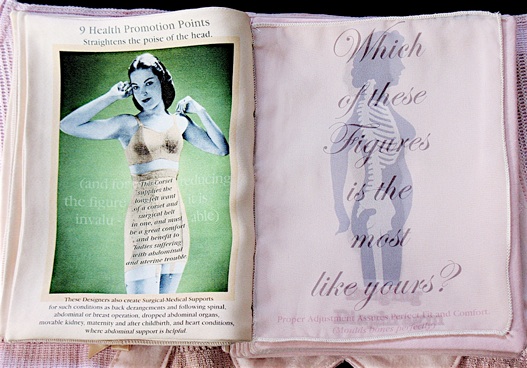 9 Health Promotion Points
Straightens the poise of the head.
This Corset
supplies the
long-felt want
of a corset and
surgical belt
in one, and must
be a great comfort
and benefit to
ladies suffering
with abdominal
and uterine trouble
(and for reducing
the figure it is
invalu able)
These Designers also create Surgical-Medical Supports
for such conditions as back derangements and following spinal,
abdominal or breast operation, dropped abdominal organs,
movable kidney, maternity and after childbirth, and heart conditions,
where abdominal support is helpful.
Which
of these
Figures
is the
most
like yours?
Proper Adjustment Assures Perfect Fit and Comfort.